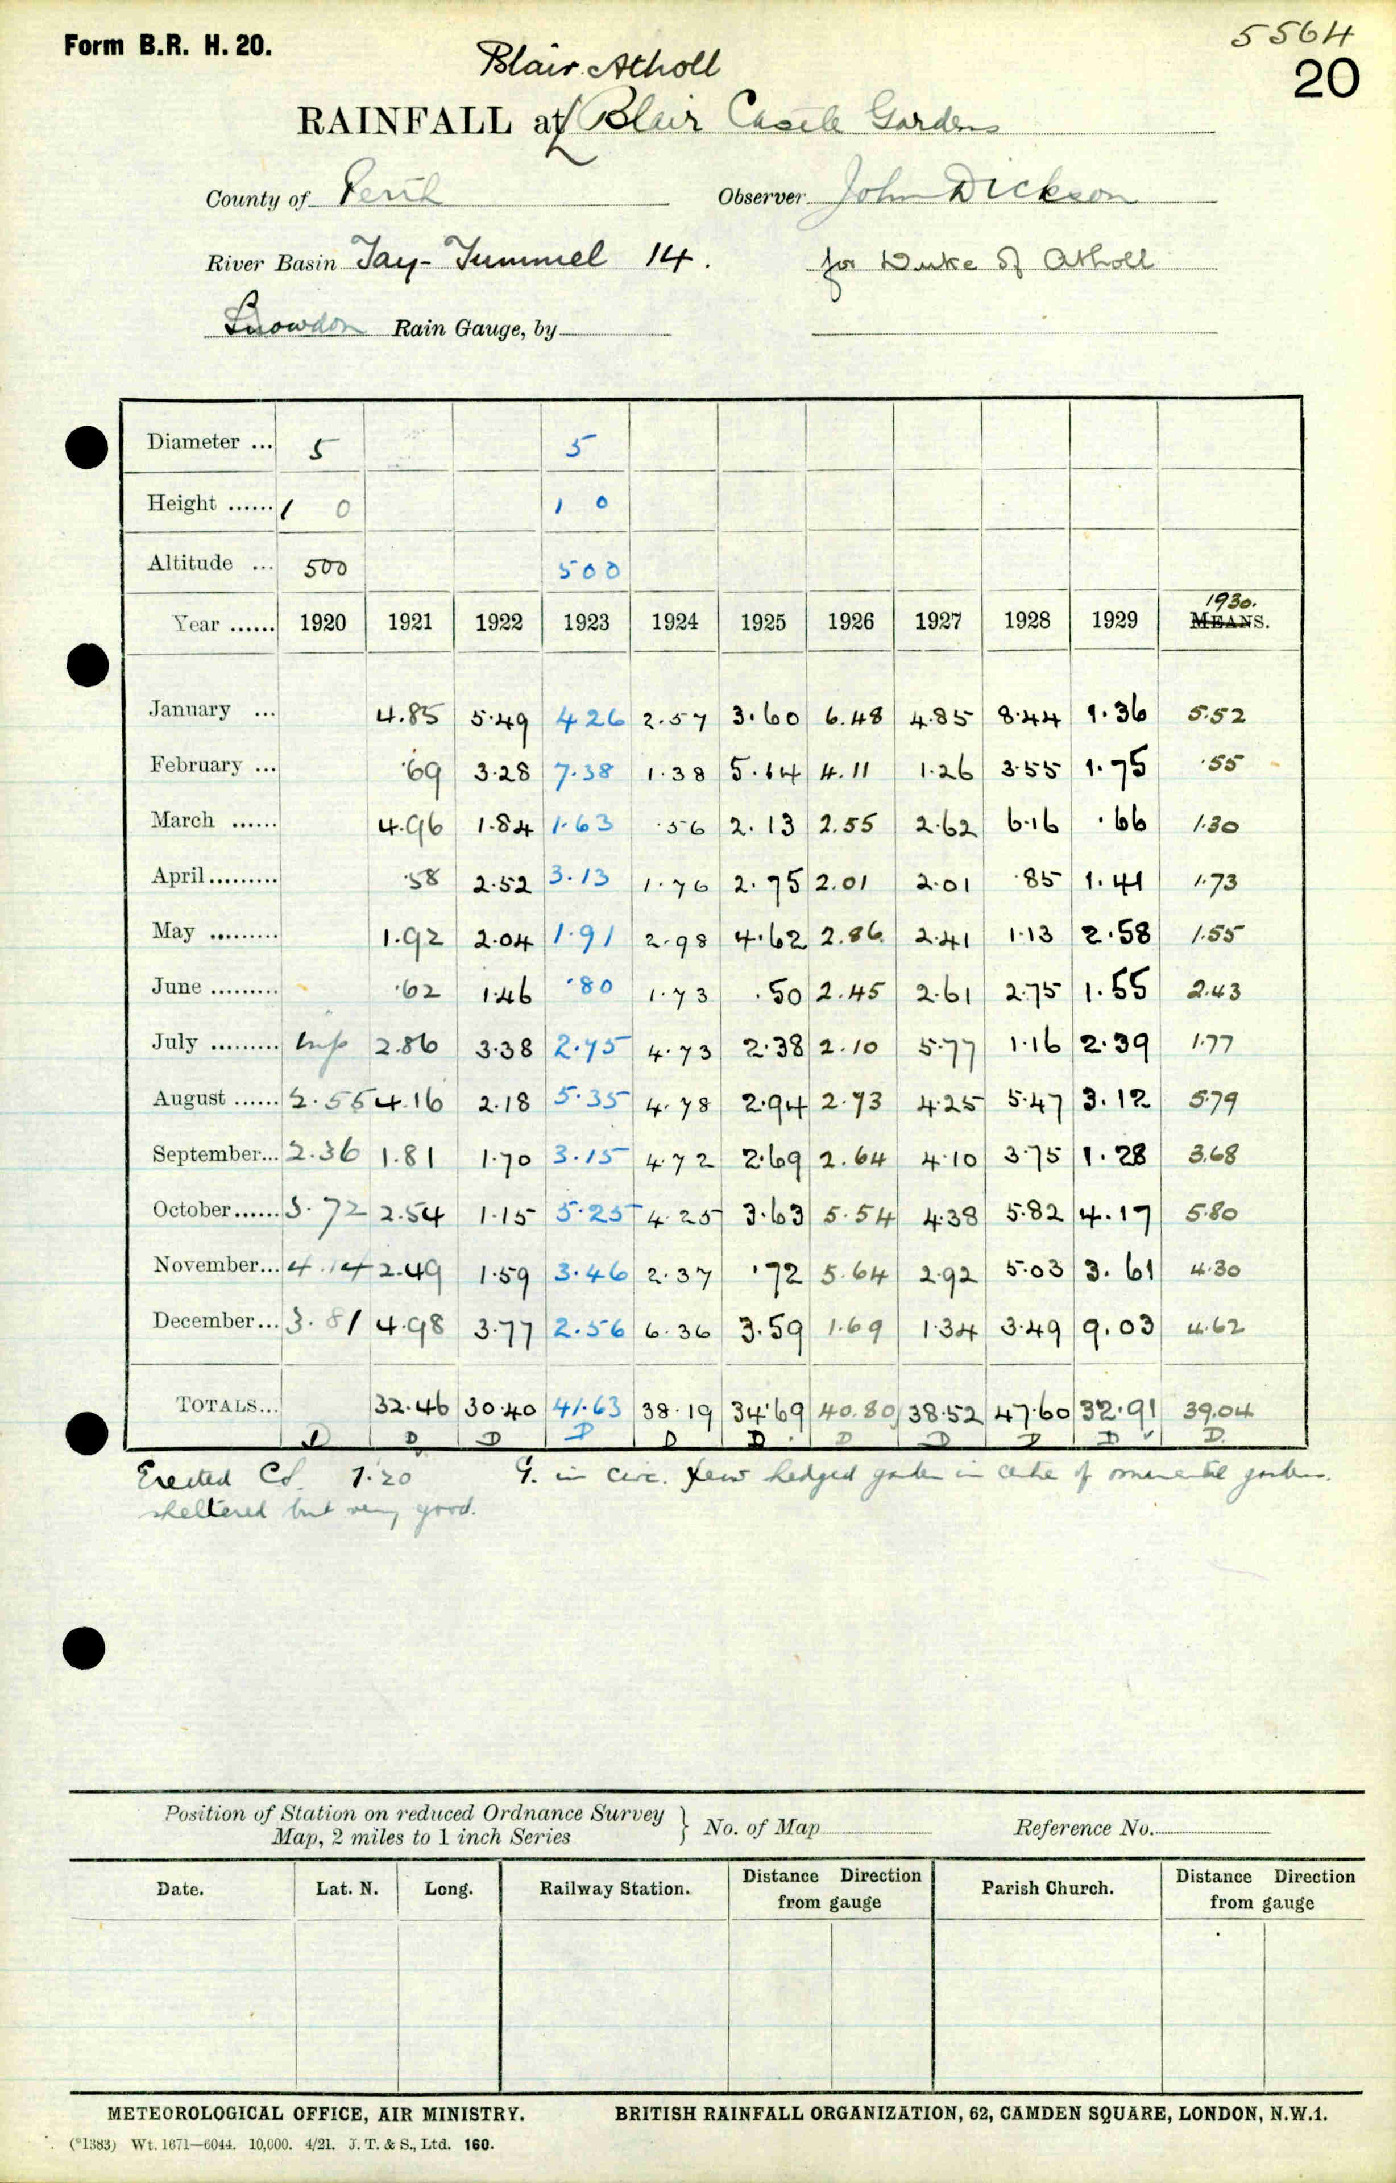 Form B.R. H. 20.
5564
20
Blair Atholl
RAINFALL at Blair Castle Gardens
County of Perth Observer John Dickson
River Basin Tay-Tummel 14. for Duke of Atholl
Snowdon Rain Gauge, by
Diameter ... 5 5
Height ...... 1 0 1 0
Altitude ... 500 500
1930.
Year ...... 1920 1921 1922 1923 1924 1925 1926 1927 1928 1929 MEANS.
January ... 4.85 5.49 4.26 2.57 3.60 6.48 4.85 8.44 1.36 5.52
February ... .69 3.28 7.38 1.38 5.14 4.11 1.26 3.55 1.75 .55
March ...... 4.96 1.84 1.63 .56 2.13 2.55 2.62 6.16 .66 1.30
April......... .58 2.52 3.13 1.76 2.75 2.01 2.01 .85 1.41 1.73
May ......... 1.92 2.04 1.91 2.98 4.62 2.86 2.41 1.13 2.58 1.55
June ......... .62 1.46 .80 1.73 .50 2.45 2.61 2.75 1.55 2.43
July ......... Imp 2.86 3.38 2.75 4.73 2.38 2.10 5.77 1.16 2.39 1.77
August ...... 2.55 4.16 2.18 5.35 4.78 2.94 2.73 4.25 5.47 3.12 5.79
September... 2.36 1.81 1.70 3.15 4.72 2.69 2.64 4.10 3.75 1.28 3.68
October...... 3.72 2.54 1.15 5.25 4.25 3.63 5.54 4.38 5.82 4.17 5.80
November... 4.14 2.49 1.59 3.46 2.37 .72 5.64 2.92 5.03 3.61 4.30
December... 3.81 4.98 3.77 2.56 6.36 3.59 1.69 1.34 3.49 9.03 4.62
TOTALS... 32.46 30.40 41.63 38.19 34.69 40.80 38.52 47.60 32.91 39.04
D D D D D D D D D D D.
Erected Cd. 7.20 G. in circ. yew hedged garden in centre of ornamental gardens.
sheltered but very good.
Position of Station on reduced Ordnance Survey
Map, 2 miles to 1 inch Series } No. of Map Reference No.
Date. Lat. N. Long. Railway Station. Distance Direction from gauge Parish Church. Distance Direction from gauge
METEOROLOGICAL OFFICE, AIR MINISTRY. BRITISH RAINFALL ORGANIZATION, 62, CAMDEN SQUARE, LONDON, N.W.1.
(*1383) Wt. 1671—6044. 10,000. 4/21. J. T. & S., Ltd. 160.